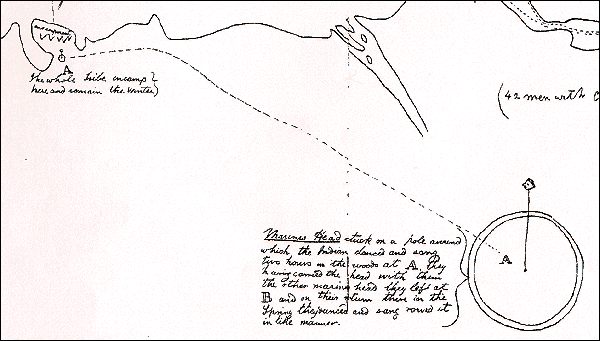 encampment
A
The whole tribe encamp'd
here and remain the winter)
(42 men with C
A
Marines Head stuck on a pole around
which, the Indian danced and sang
two hours in the woods at A. they
having carried the head with them
the other marine head they left at
B and on their return there in the
Spring they danced and sang round it
in like manner.